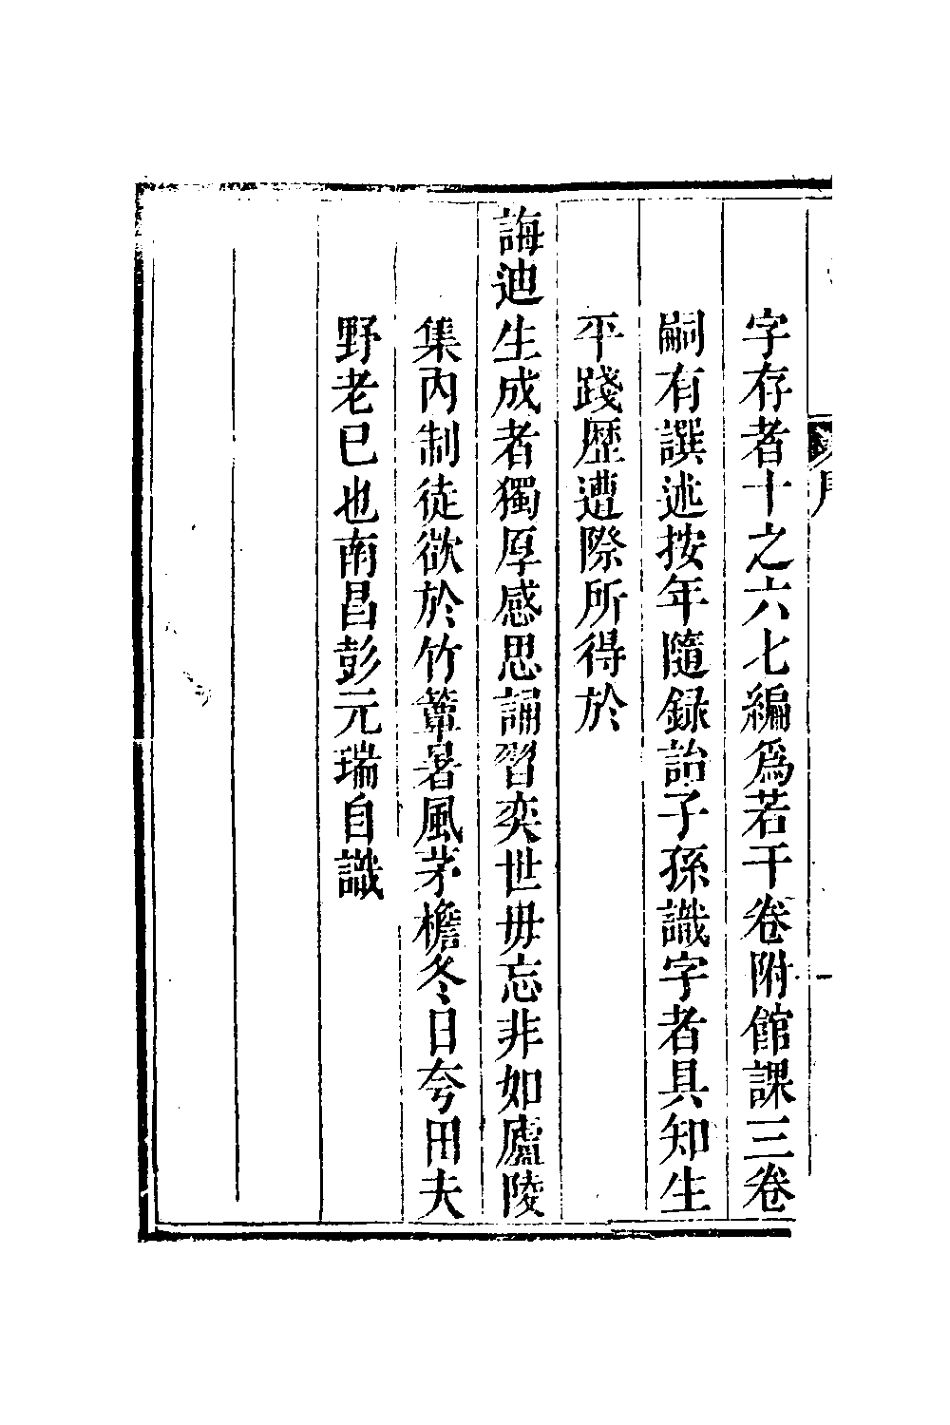 字存者十之六七編爲若干卷附館課三卷
嗣有譔述按年隨録詒子孫識字者具知生
平踐歷遭際所得於
誨迪生成者獨厚感思誦習奕世毋忘非如廬陵
集內制徒欲於竹簟暑風茅檐冬日夸田夫
野老已也南昌彭元瑞自識